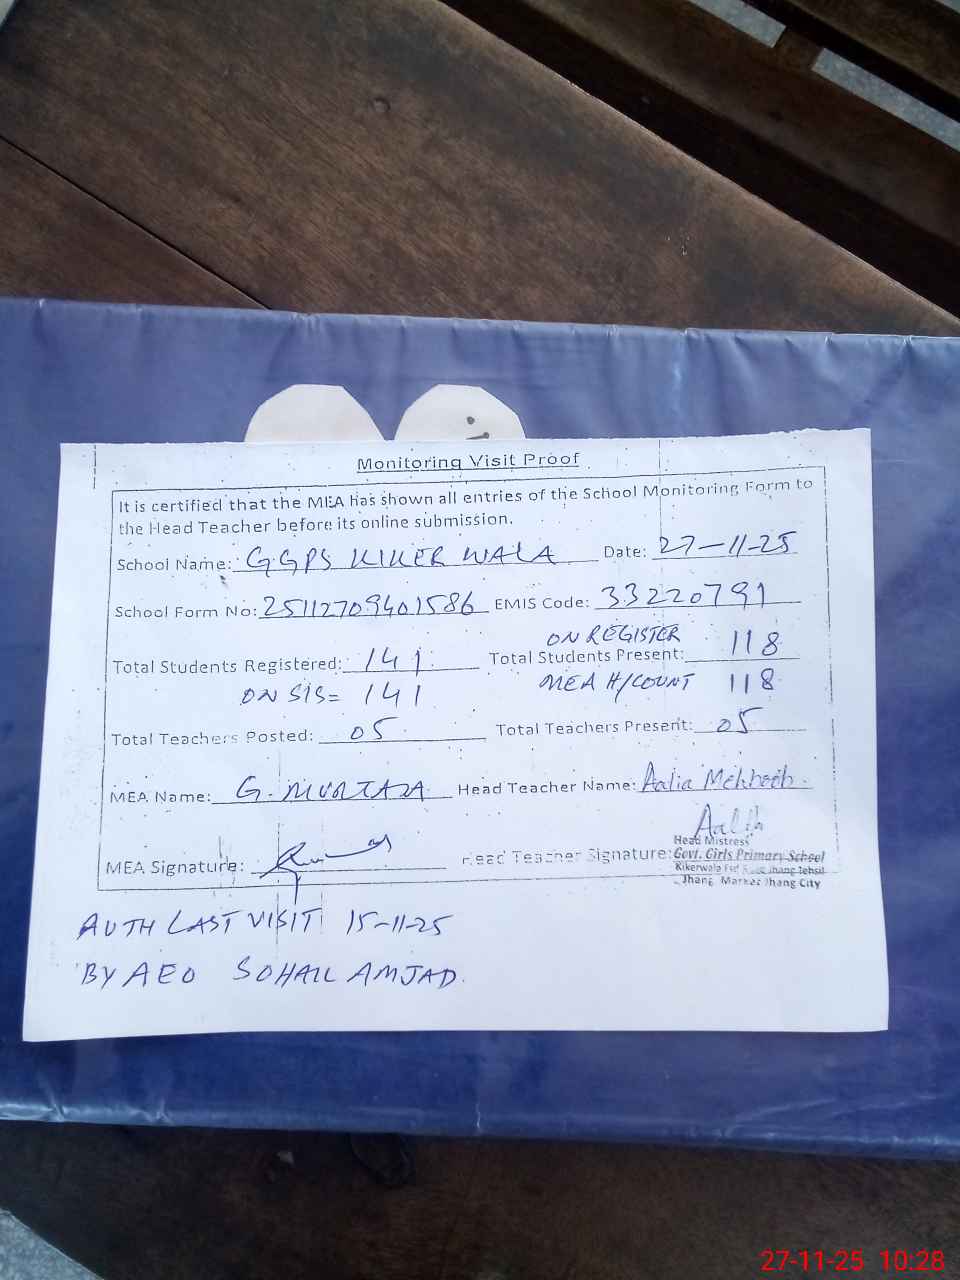 Monitoring Visit Proof
It is certified that the MEA has shown all entries of the School Monitoring Form to
the Head Teacher before its online submission.
School Name: G.G.P.S KIKER WALA Date: 27-11-25
School Form No: 25112709401586 EMIS Code: 33220791
ON REGISTER
Total Students Registered: 141 Total Students Present: 118
ON SIS= 141 MEA H/COUNT 118
Total Teachers Posted: 05 Total Teachers Present: 05
MEA Name: G. MURTAZA Head Teacher Name: Aalia Mehboob
MEA Signature: Head Teacher Signature: Aalia
Head Mistress
Govt. Girls Primary School
Kikerwala Jhang Tehsil
Jhang, Markaz Jhang City
AUTH LAST VISIT 15-11-25
BY AEO SOHAIL AMJAD.
27-11-25 10:28